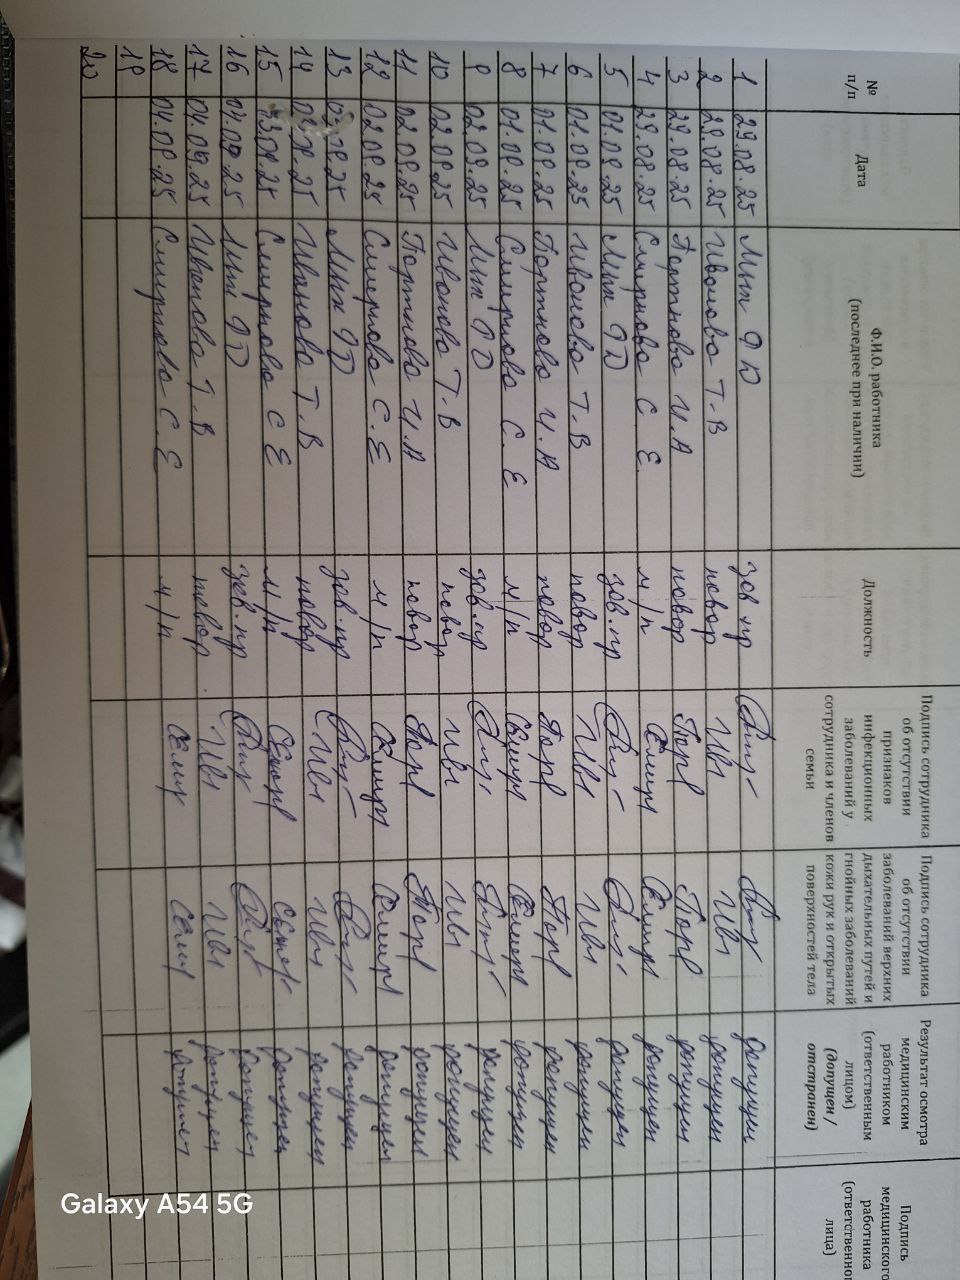 № п/п
Дата
Ф.И.О. работника
(последнее при наличии)
Должность
Подпись сотрудника
об отсутствии
признаков
инфекционных
заболеваний у
сотрудника и членов
семьи
Подпись сотрудника
об отсутствии
заболеваний верхних
дыхательных путей и
гнойных заболеваний
кожи рук и открытых
поверхностей тела
Результат осмотра
медицинским
работником
(ответственным
лицом)
(допущен /
отстранен)
Подпись
медицинского
работника
(ответственно
лица)
1 29.08.25 зав.пр допущен
2 29.08.25 Иванова Т.В повар Ива Ива допущен
3 29.08.25 Портнова И.А повар Порт Порт допущен
4 29.08.25 Смирнова С Е м/п Смирн Смирн допущен
5 01.09.25 зав.пр допущен
6 01.09.25 Иванова Т.В повар Ива Ива допущен
7 01.09.25 Портнова И.А повар Порт Порт допущен
8 01.09.25 Смирнова С.Е м/п Смирн Смирн допущен
9 02.09.25 зав.пр допущен
10 02.09.25 Иванова Т.В повар Ива Ива допущен
11 02.09.25 Портнова И.А повар Порт Порт допущен
12 02.09.25 Смирнова С.Е м/п Смирн Смирн допущен
13 03.09.25 зав.пр допущен
14 03.09.25 Иванова Т.В повар Ива Ива допущен
15 03.09.25 Смирнова С Е м/п допущен
16 04.09.25 зав.пр допущен
17 04.09.25 Иванова Т.В повар Ива Ива допущен
18 04.09.25 Смирнова С.Е м/п допущен
19
20
Galaxy A54 5G